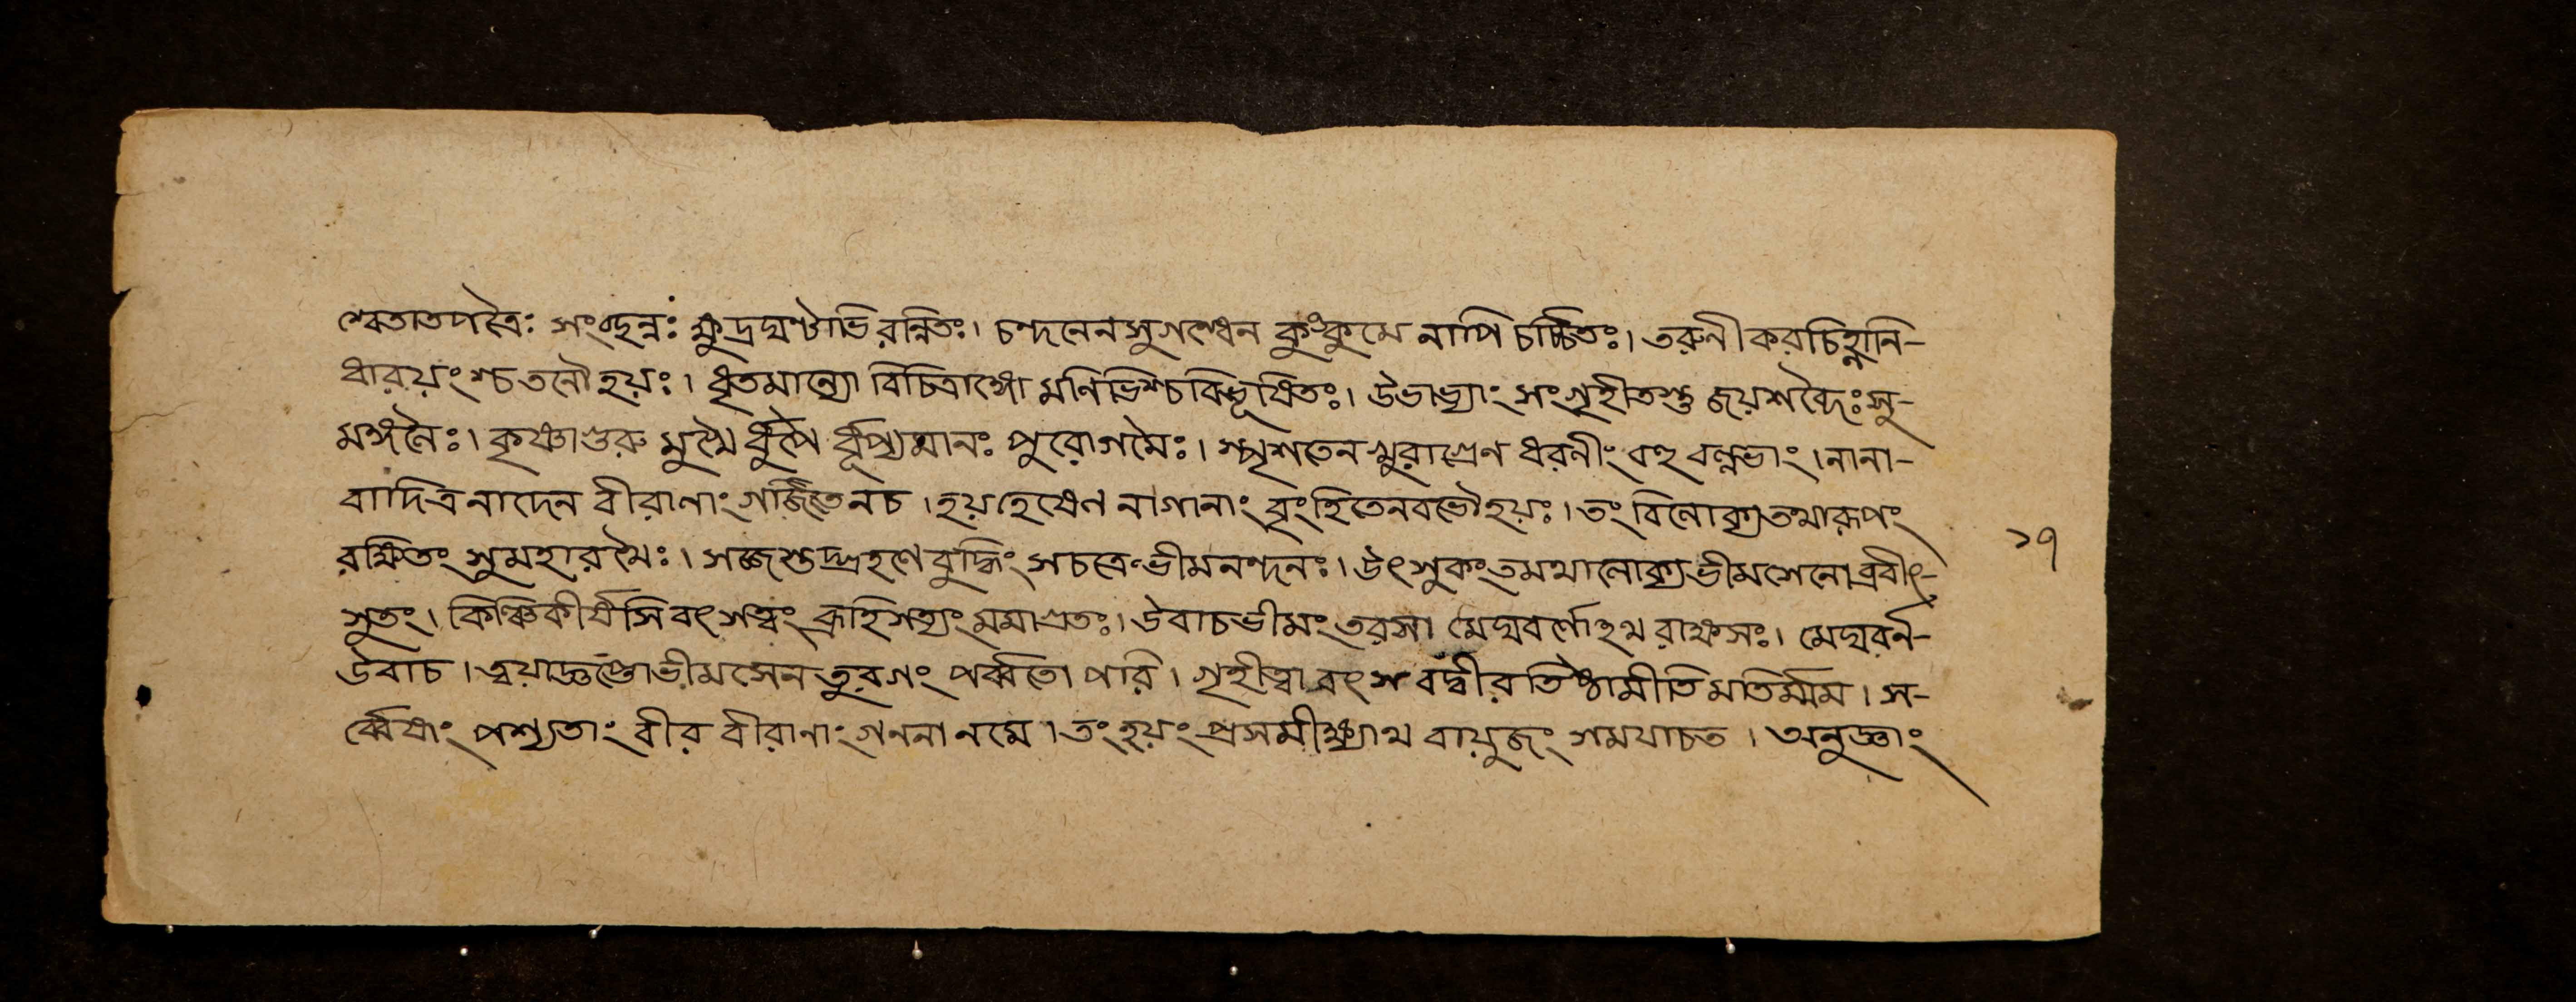 শ্বেতাতপত্রৈঃ সংছন্নঃ ক্ষুদ্রঘণ্টাভিরন্নিতঃ। চন্দনেন সুগন্ধেন কুঙ্কুমে নাপি চর্চ্চিতঃ। তরুনী করচিহ্নানি-
ধারয়ংশ্চতনৌ হয়ঃ। ধৃতমাল্যো বিচিত্রাঙ্গো মণিভিশ্চ বিভূষিতঃ। উভাভ্যাং সংগৃহীতস্তু জয়শব্দৈঃ সু-
মঙ্গলৈঃ। কৃষ্ণাগুরু মুখৈ র্ধূপৈ র্ধূপ্যমানঃ পুরোগমৈঃ। স্পৃশতেন খুরাগ্রেণ ধরনীং বহু বল্লভাং। নানা-
বাদিত্র নাদেন বীরাণাং গর্জ্জিতেনচ। হয়হেষেণ নাগানাং বৃংহিতেনবভৌহয়ঃ। তং বিলোক্যতথারূপং
রক্ষিতং সুমহারথৈঃ। সজ্জস্তদ্গ্রহণে বুদ্ধিং সচক্রে ভীমনন্দনঃ। উৎসুকং তমথালোক্য ভীমশেনোব্রবীৎ-
সুতং। কিঞ্চিকীর্ষসি বৎসত্বং ব্রূহিসত্যং মমাগ্রতঃ। উবাচভীমং তরসা মেঘবর্ণোঽথ রাক্ষসঃ। মেঘবর্ন-
উবাচ। ত্বয়াজ্ঞপ্তোভীমসেন তুরগং পর্ব্বতো পরি। গৃহীত্বা বৎসবদ্বীর তিষ্ঠামীতি মতির্ম্মম। স-
র্ব্বেষাং পশ্যতাং বীর বীরানাং গননা নমে। তং হয়ং প্রসমীক্ষ্যাথ বায়ুজং সমযাচত। অনুজ্ঞাং
১৭